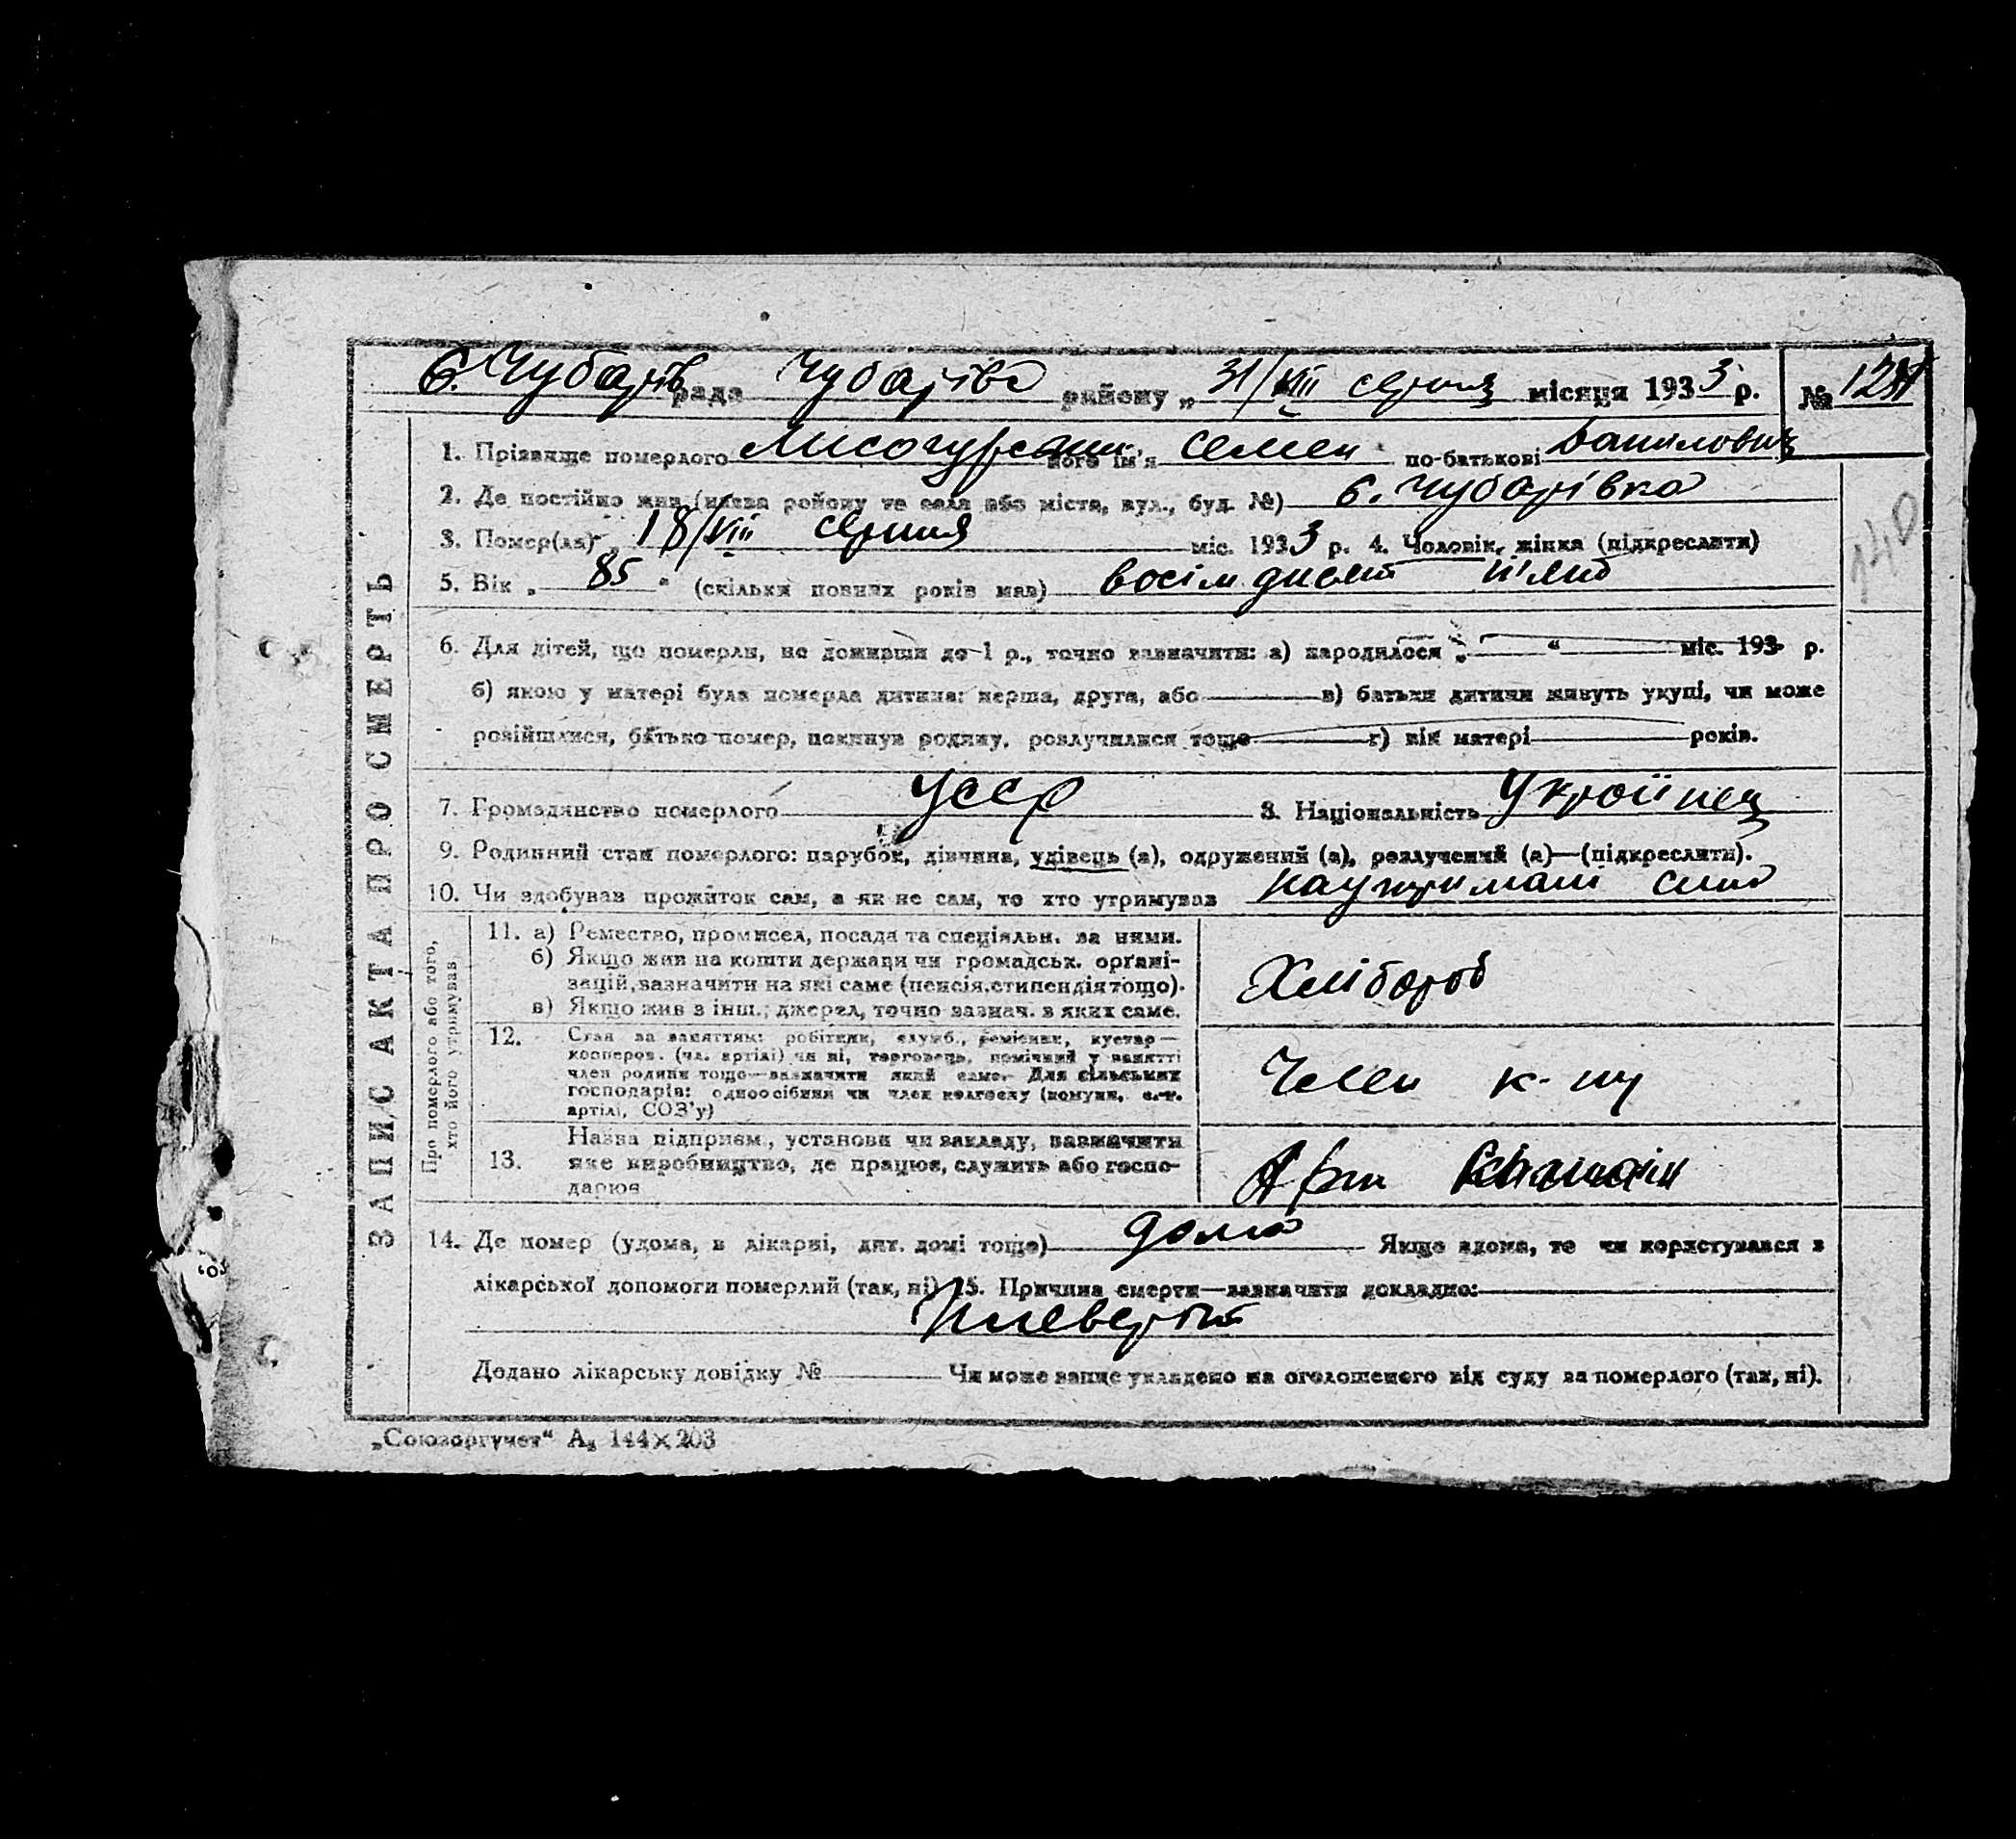 С. Чубарів рада Чубарівс району „ 31/VIII серпня місяця 1933 р. №
1. Прізвище померлого Лисогурський його ім'я Семен по-батькові Данилович
2. Де постійно жив (назва району та села або міста, вул., буд. №) с. Чубарівка
3. Помер(ла) „ 18/VIII серпня міс. 1933 р. 4. Чоловік, жінка (підкреслити)
5. Вік „ 85 “ (скільки повних років мав) восімдисят п'ять
6. Для дітей, що померли, не доживши до 1 р., точно зазначити: а) народилося „ “ міс. 193 р.
б) якою у матері була померла дитина: перша, друга, або в) батьки дитини живуть укупі, чи може
розійшлися, батько помер, покинув родину, розлучилися тощо г) вік матері років.
7. Громадянство померлого УССР 8. Національність Українец
9. Родинний стан померлого: парубок, дівчина, удівець (а), одружений (а), розлучений (а)—(підкреслити).
10. Чи здобував прожиток сам, а як не сам, то хто утримував на утримані сина
11. а) Ремество, промисел, посада та спеціяльн. за ними.
б) Якщо жив на кошти держави чи громадськ. органі-
зацій, зазначити на які саме (пенсія, стипендія тощо).
в) Якщо жив з інш. джерел, точно зазнач. з яких саме.
Хлібороб
12. Стан за заняттям: робітник, служб., ремісник, кустар—
кооперов. (чл. артілі) чи ні, торговець, помічний у занятті
член родини тощо—зазначити який саме. Для сільських
господарів: одноосібник чи член колгоспу (комуни, с.-г.
артілі, СОЗ'у)
Член к-пу
13. Назва підприєм., установи чи закладу, зазначити
яке виробництво, де працює, служить або госпо-
дарює
Арт
14. Де помер (удома, в лікарні, дит. домі тощо) дома Якщо вдома, то чи користувався з
лікарської допомоги померлий (так, ні) 15. Причина смерти—зазначити докладно:
Плеверіт
Додано лікарську довідку № Чи може запис укладено на оголошеного від суду за померлого (так, ні).
„Союзоргучет“ А₅ 144×203
ЗАПИС АКТА ПРО СМЕРТЬ
Про померлого або того,
хто його утримував
140